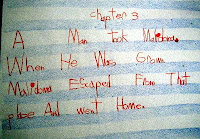 chapter 3
A Man Took Malidoma.
When He Was Grown
Malidoma Escaped From That
place And went Home.